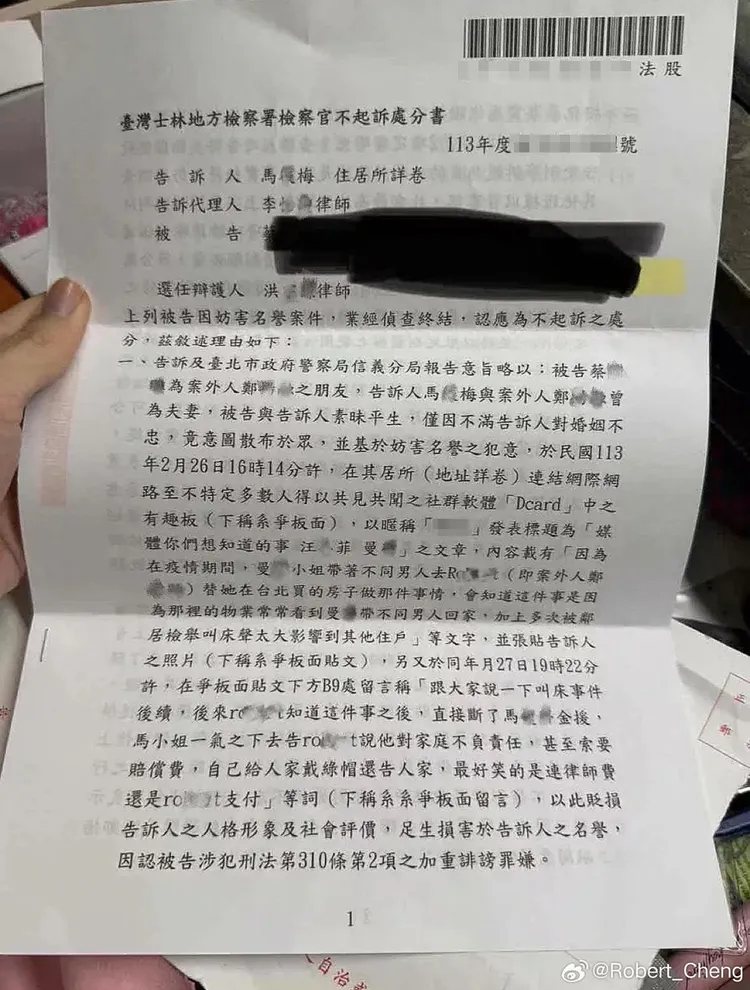 法股
臺灣士林地方檢察署檢察官不起訴處分書
113年度 號
告訴人 馬 梅 住居所詳卷
告訴代理人 李 律師
被告
選任辯護人 洪 律師
上列被告因妨害名譽案件，業經偵查終結，認應為不起訴之處
分，茲敘述理由如下：
一、告訴及臺北市政府警察局信義分局報告意旨略以：被告蔡
為案外人鄭 之朋友，告訴人馬 梅與案外人鄭 曾
為夫妻，被告與告訴人素昧平生，僅因不滿告訴人對婚姻不
忠，竟意圖散布於眾，並基於妨害名譽之犯意，於民國113
年2月26日16時14分許，在其居所（地址詳卷）連結網際網
路至不特定多數人得以共見共聞之社群軟體「Dcard」中之
有趣板（下稱系爭板面），以暱稱「 」發表標題為「媒
體你們想知道的事 汪 菲 曼 」之文章，內容載有「因為
在疫情期間，曼 小姐帶著不同男人去Ro t（即案外人鄭
）替她在台北買的房子做那件事情，會知道這件事是因
為那裡的物業常常看到曼 帶不同男人回家，加上多次被鄰
居檢舉叫床聲太大影響到其他住戶」等文字，並張貼告訴人
之照片（下稱系爭板面貼文），另又於同年月27日19時22分
許，在爭板面貼文下方B9處留言稱「跟大家說一下叫床事件
後續，後來ro t知道這件事之後，直接斷了馬 金援，
馬小姐一氣之下去告ro t說他對家庭不負責任，甚至索要
賠償費，自己給人家戴綠帽還告人家，最好笑的是連律師費
還是ro t支付」等詞（下稱系系爭板面留言），以此貶損
告訴人之人格形象及社會評價，足生損害於告訴人之名譽，
因認被告涉犯刑法第310條第2項之加重誹謗罪嫌。
1
人自治
@Robert_Cheng